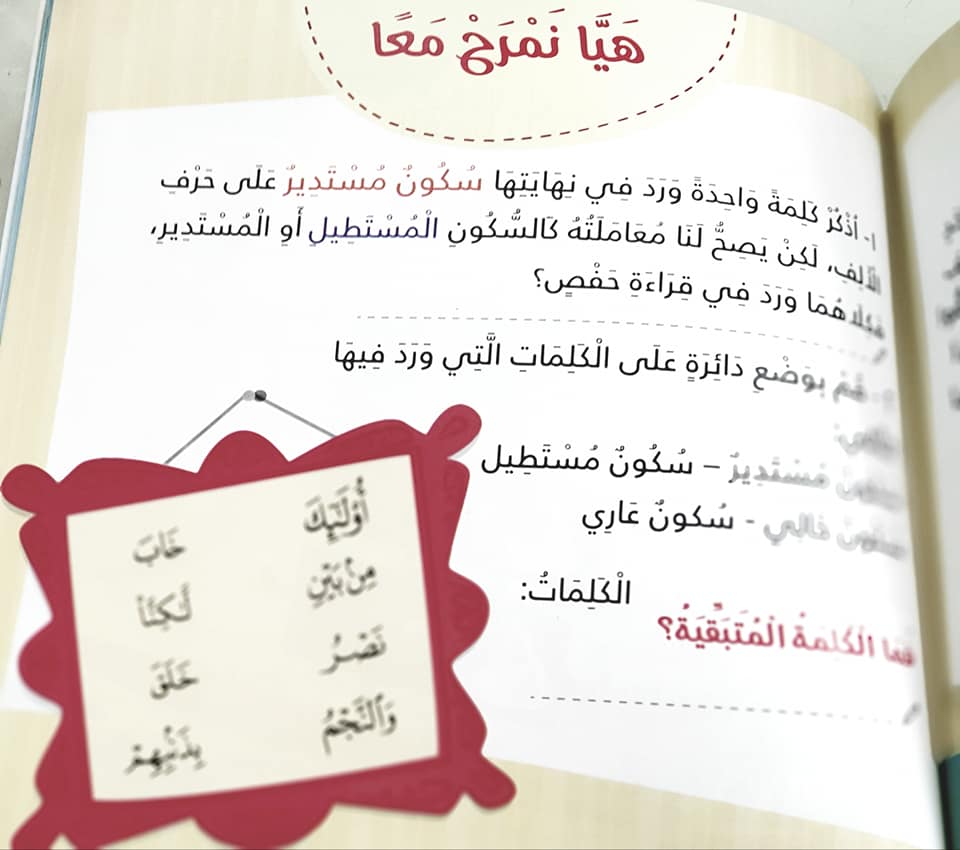 هَيَّا نَمْرَحْ مَعًا
١- أَذْكُرْ كَلِمَةً وَاحِدَةً وَرَدَ فِي نِهَايَتِهَا سُكُونٌ مُسْتَدِيرٌ عَلَى حَرْفِ
الْأَلِفِ، لَكِنْ يَصِحُّ لَنَا مُعَامَلَتُهُ كَالسُّكُونِ الْمُسْتَطِيلِ أَوِ الْمُسْتَدِيرِ،
فَكِلَاهُمَا وَرَدَ فِي قِرَاءَةِ حَفْصٍ؟
قُمْ بِوَضْعِ دَائِرَةٍ عَلَى الْكَلِمَاتِ الَّتِي وَرَدَ فِيهَا
سُكُونٌ مُسْتَدِيرٌ – سُكُونٌ مُسْتَطِيل
سُكُونٌ خَالِي - سُكونٌ عَارِي
الْكَلِمَاتُ:
فَمَا الْكَلِمَةُ الْمُتَبَقِّيَةُ؟
أُوْلَٰٓئِكَ خَابَ
مِنۢ بَيْنِ لَّٰكِنَّا۠
نَصْرُ خَلَقَ
وَٱلنَّجْمُ بِذَنۢبِهِمْ